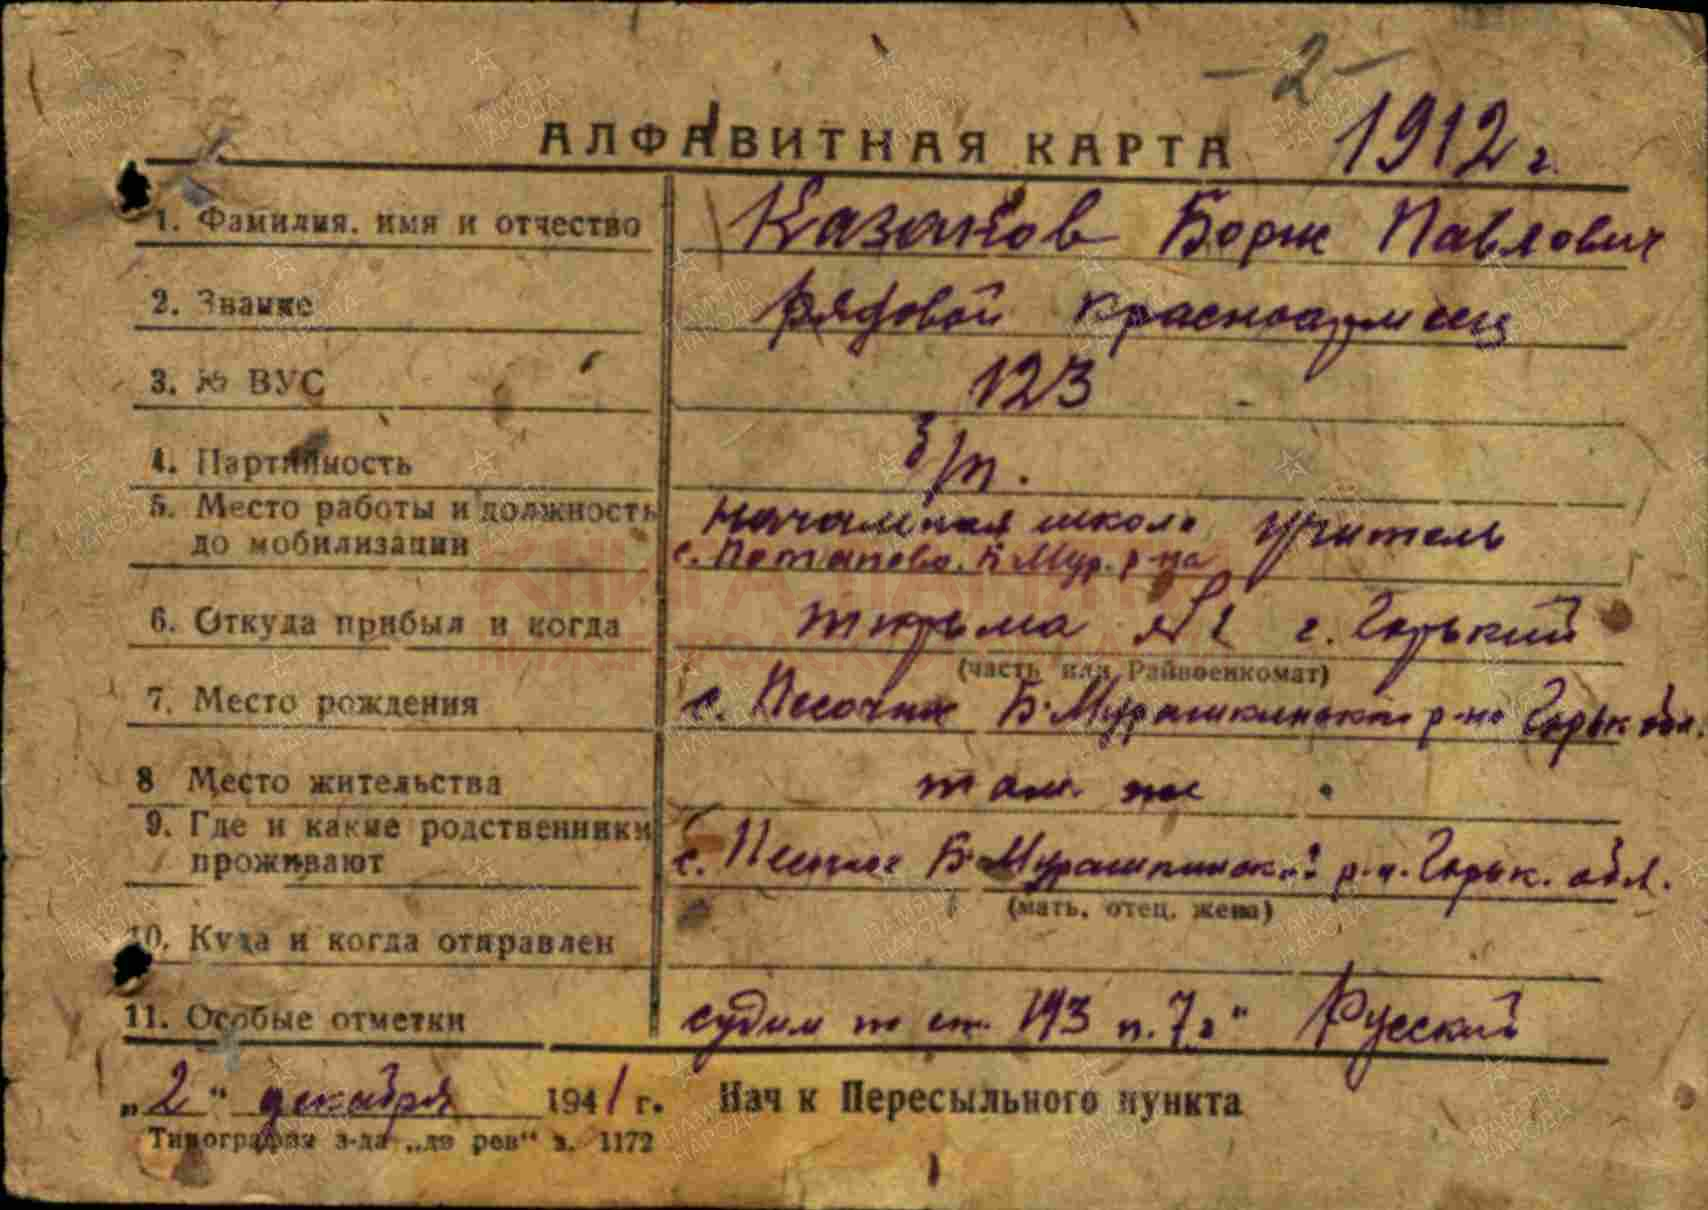 -2-
АЛФАВИТНАЯ КАРТА 1912 г.
1. Фамилия. имя и отчество Казаков Борис Павлович
2. Звание рядовой красноармеец
3. № ВУС 123
4. Партийность б/п.
5. Место работы и должность начальная школа учитель
до мобилизации с. Потапово. Б Мур. р-на
6. Откуда прибыл и когда тюрьма №1 г. Горький
(часть или Райвоенкомат)
7. Место рождения с. Песочное Б-Мурашкинского р-на Горьк. обл.
8 Место жительства там же
9. Где и какие родственники
проживают с. Песочное Б-Мурашкинск. р-н. Горьк. обл.
(мать, отец, жена)
10. Куда и когда отправлен
11. Особые отметки судим по ст. 193 п. 7 г" Русский
„2" декабря 1941 г. Нач к Пересыльного пункта
Типография з-да „дв рев" з. 1172
КНИГА ПАМЯТИ
НИЖЕГОРОДСКОЙ ОБЛАСТИ
ПАМЯТЬ НАРОДА